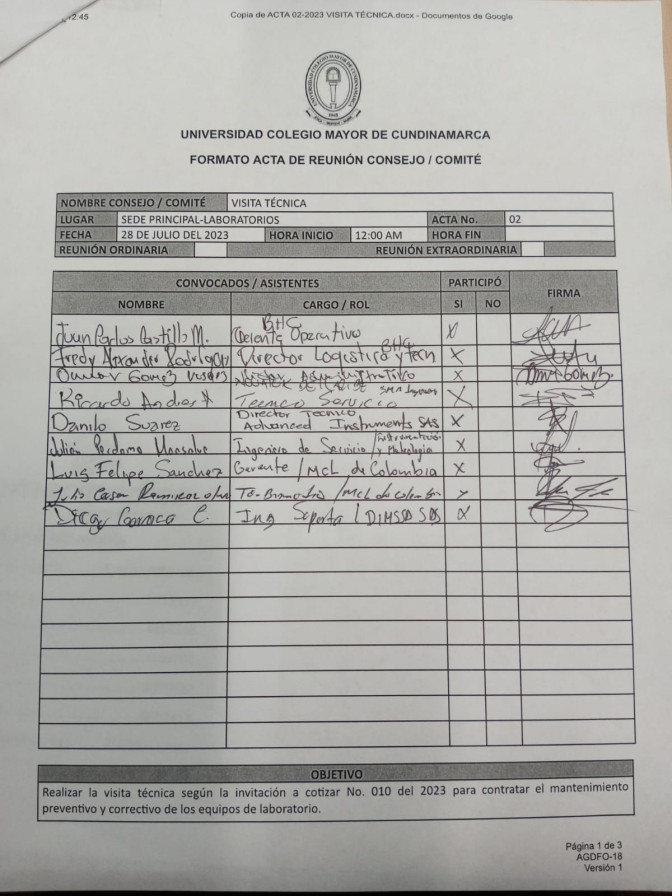 2:45 Copia de ACTA 02-2023 VISITA TÉCNICA.docx - Documentos de Google
UNIVERSIDAD COLEGIO MAYOR DE CUNDINAMARCA
FORMATO ACTA DE REUNIÓN CONSEJO / COMITÉ
NOMBRE CONSEJO / COMITÉ VISITA TÉCNICA
LUGAR SEDE PRINCIPAL-LABORATORIOS ACTA No. 02
FECHA 28 DE JULIO DEL 2023 HORA INICIO 12:00 AM HORA FIN
REUNIÓN ORDINARIA REUNIÓN EXTRAORDINARIA
CONVOCADOS / ASISTENTES PARTICIPÓ FIRMA
NOMBRE CARGO / ROL SI NO
Juan Carlos Castillo M. Gerente Operativo BHG X
Fredy Alexander Director Logistico y tecn BHG X
Omar Gomez X
Ricardo Andres Tecnico Servicio X
Danilo Suarez Director Tecnico Advanced Instruments SAS X
Julián Perdomo Monsalve Ingeniero de Servicio / y Metrologia X
Luis Felipe Sanchez Gerente / MCL de Colombia X
Julio Cesar / MCL de Colombia X
Diego C. Ing Soporte / DIMSO SAS X
OBJETIVO
Realizar la visita técnica según la invitación a cotizar No. 010 del 2023 para contratar el mantenimiento
preventivo y correctivo de los equipos de laboratorio.
Página 1 de 3
AGDFO-18
Versión 1